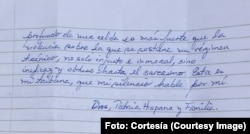 producto de una celda es mas fuerte que la
violencia sobre la que se sostiene un régimen
tiránico, no solo injusto e inmoral, sino
ineficaz y obtuso hasta el sarcasmo. Esta es
mi tribuna, que mi silencio hable por mí
Dios, Patria, Hispana y Familia.
Foto: Cortesía (Courtesy Image)